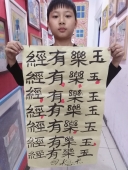 經有樂玉
經有樂玉
經有樂玉
經有樂玉
經有樂玉
經有樂玉
經有樂玉